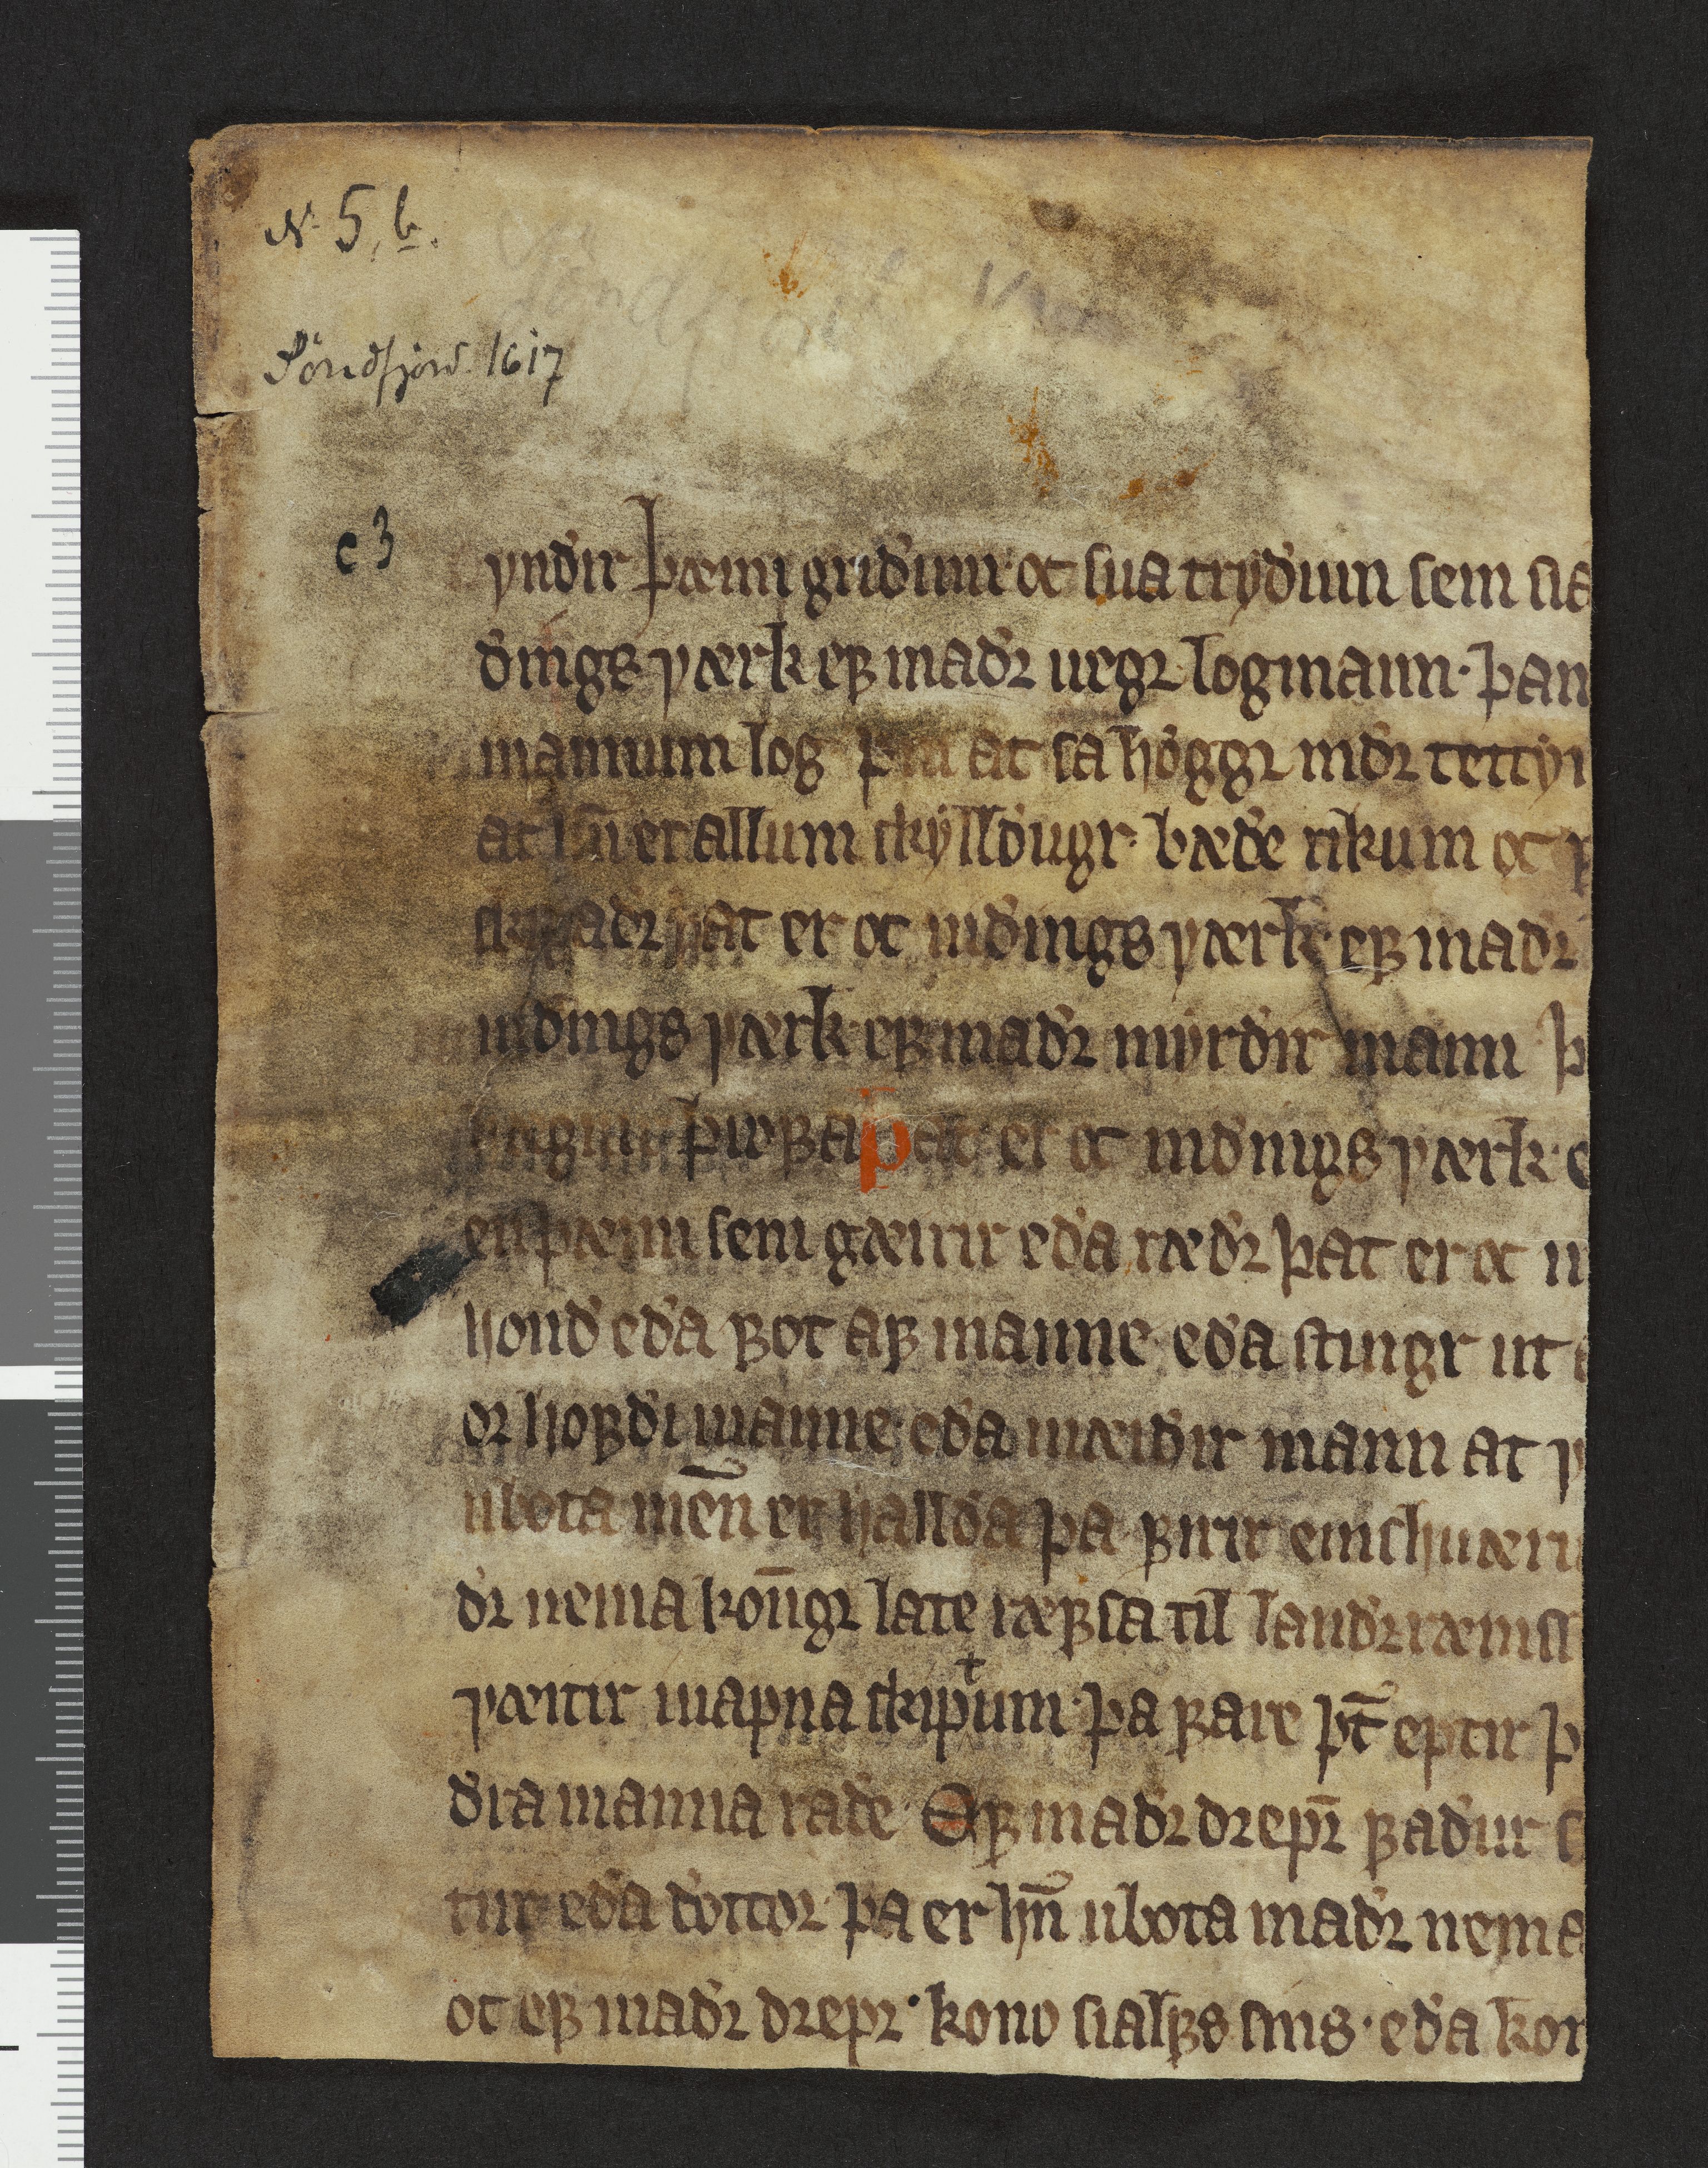 N. 5, b.
Söndfjord. 1617
c 3
yndir þæim gridum oc sua trydum sem sia
dings værk ef madr uegr logmann. þan
mannum log þui at sa høggr nidr tettyn
at hn̄ er allum skylldugr. bæde rikum oc
þat er oc nidings værk ef madr
nidings værk ef madr myrdir mann þ
þiofa þat er oc nidings værk e
en þæim sem gærir eda rædr þat er oc n
hond eda fot af manne eda stingr ut
or hofdi manne eda mæidir mann at
ubota men̄ er hallda þa firir einshuæriu
dr nema kon̄gr late ræfsa til landz ræinss
væitir uapna skiptum. þa fare þt̄ eptir þ
dra manna rade. Ef madr drepr̄ fadur
tur eda dottor þa er hn̄ ubota madr nema
oc ef madr drepr kono sialfs sins. eda kon